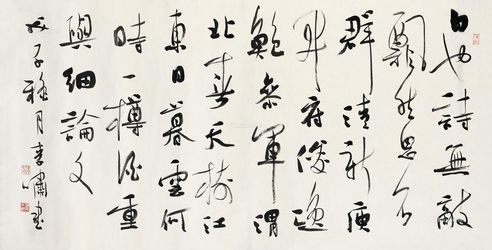 白也詩無敵
飄然思不
群清新庾
開府俊逸
鮑參軍渭
北春天樹江
東日暮雲何
時一樽酒重
與細論文
子月李嘯書